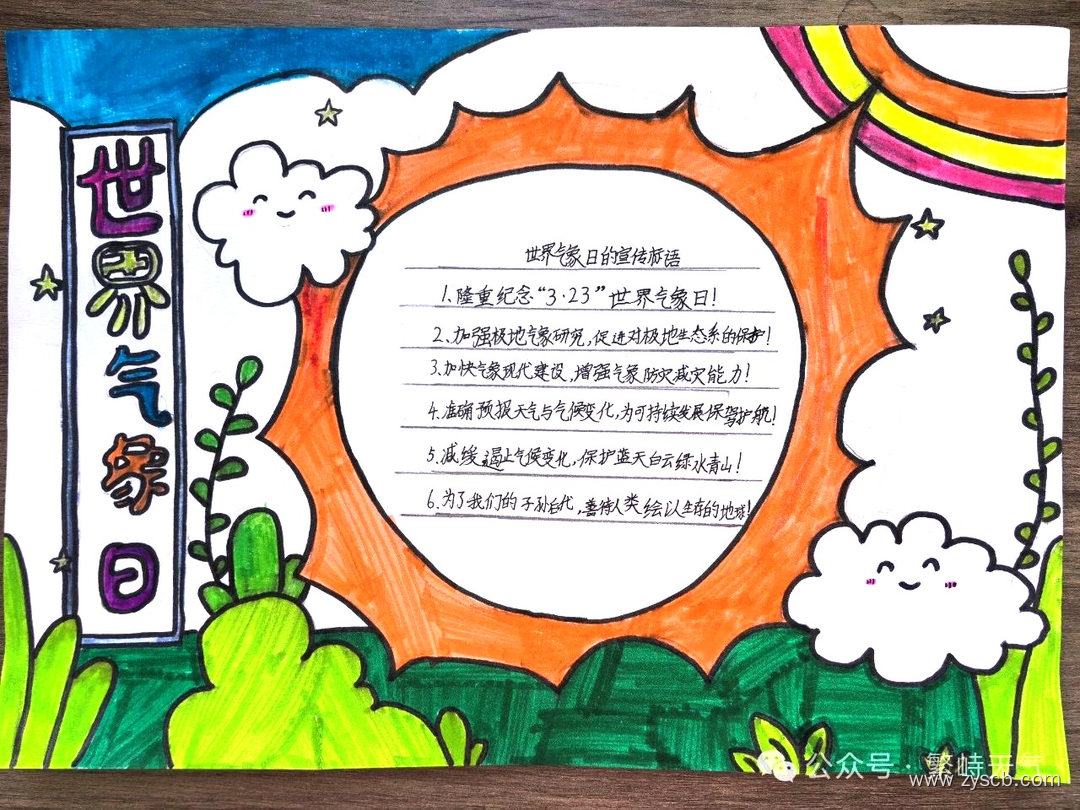 世界气象日
世界气象日的宣传标语
1、隆重纪念“3·23”世界气象日!
2、加强极地气象研究,促进对极地生态系的保护!
3、加快气象现代建设,增强气象防灾减灾能力!
4、准确预报天气与气候变化,为可持续发展保驾护航!
5、减缓遏止气候变化,保护蓝天白云绿水青山!
6、为了我们的子孙后代,善待人类绘以生存的地球!
公众号·繁峙天气
www.zyscb.com